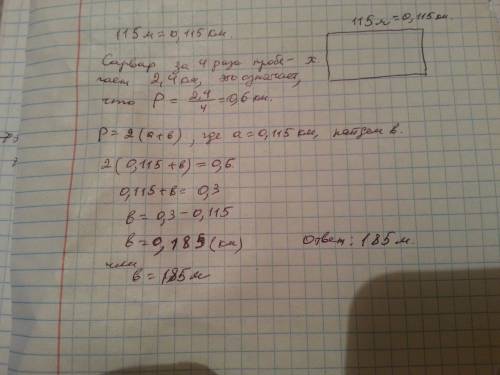 115м = 0,115 км.
115м = 0,115 км.
Сарвар за 4 раза пробе-
гает 2,4 км, это означает,
x.
что P = 2,4/4 = 0,6 км.
P = 2(a+в), где a = 0,115 км, найдем в.
2(0,115+в) = 0,6
0,115+в = 0,3
в = 0,3 - 0,115
в = 0,185 (км)
или
в = 185м
Ответ: 185 м.